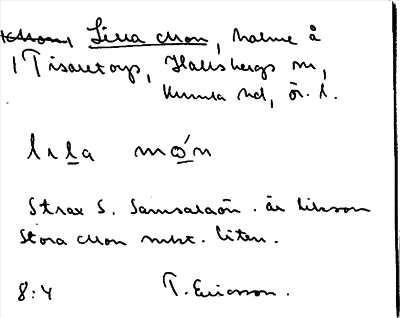 Lilla Mon, holme å
i Tisaretorp, Hallsbergs sn,
Kumla hd, ör. l.
lıla mớn
Strax S. Samsalaön. är liksom
Stora Mon mkt. liten.
8:4 T. Ericsson.